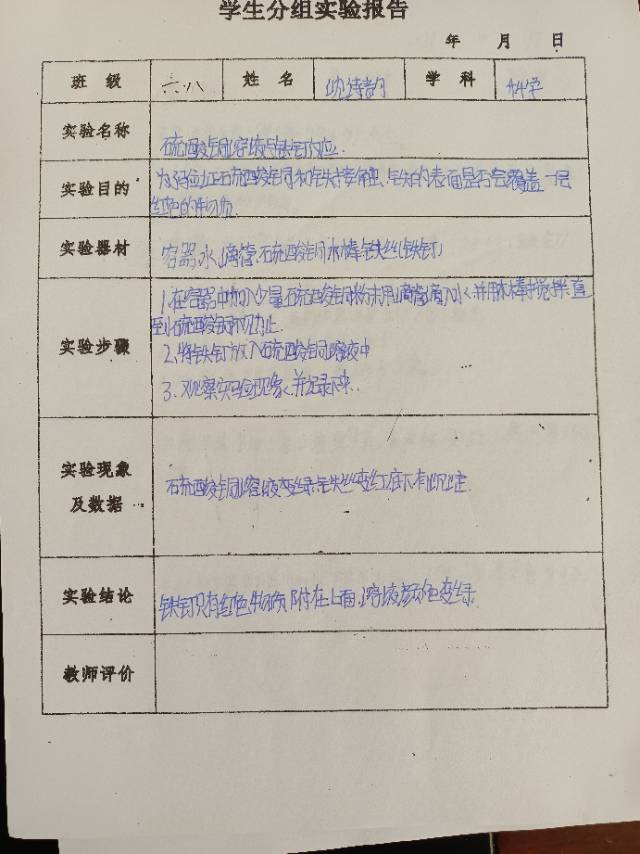 学生分组实验报告
年 月 日
班 级 六八 姓 名 沈诗韵 学 科 科学
实验名称 硫酸铜溶液与铁钉反应.
实验目的 为了验证硫酸铜和铁接触,铁的表面是否会覆盖一层
红色的物质.
实验器材 容器,水,滴管,硫酸铜,木棒,铁丝(铁钉)
实验步骤 1.在容器中加入少量硫酸铜粉末用滴管滴入水,并用木棒搅拌,直
到硫酸铜
2.将铁钉放入硫酸铜溶液中
3.观察实验现象,并记录下来.
实验现象
及数据 硫酸铜溶液变绿,铁丝变红,底下有沉淀.
实验结论 铁钉只有红色物质附在上面,溶液颜色变绿.
教师评价